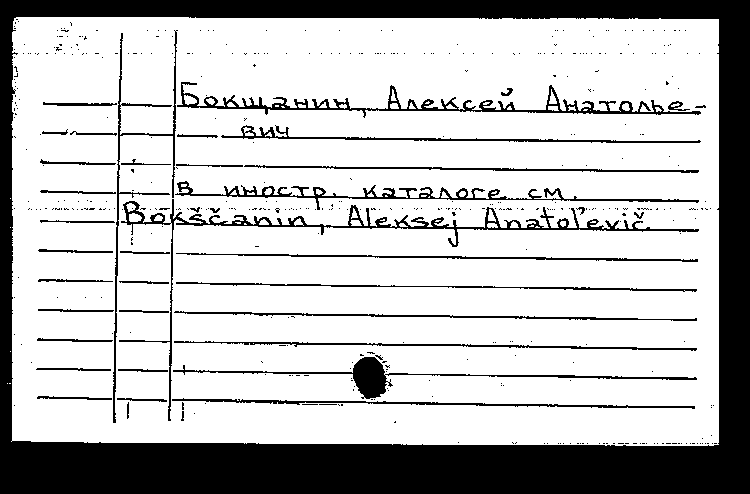 Бокщанин, Алексей Анатолье-
вич
в иностр. каталоге см.
Bokščanin, Aleksej Anatol'evič